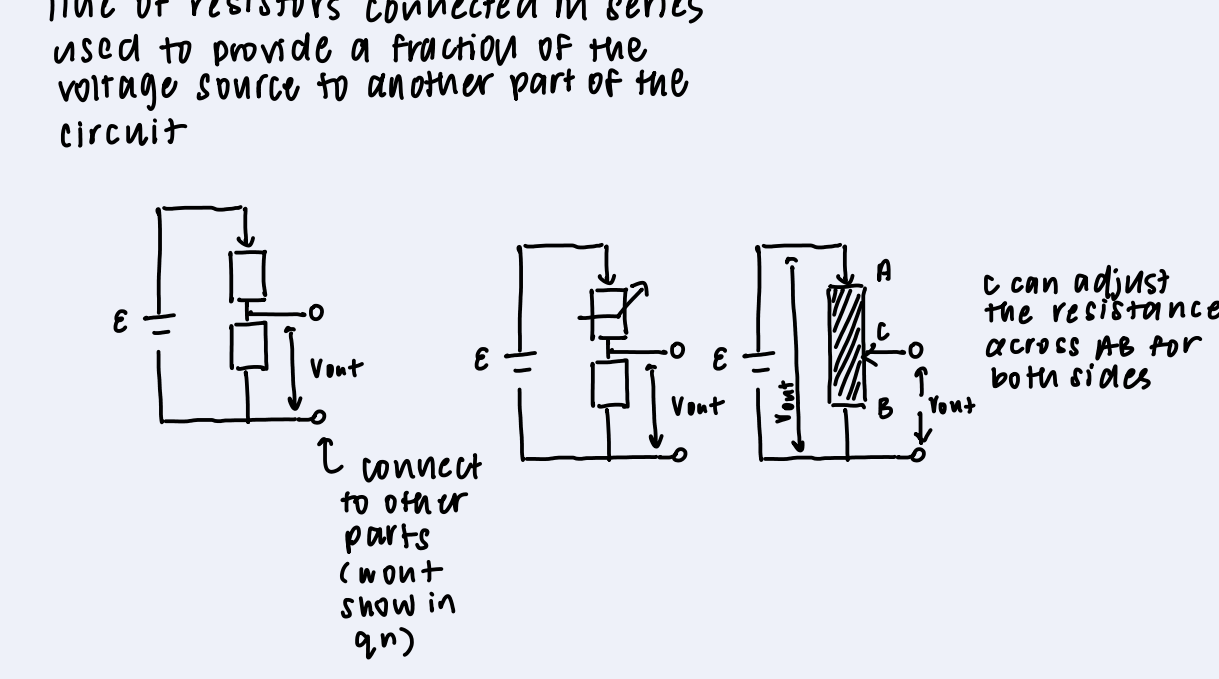 line of resistors connected in series
used to provide a fraction of the
voltage source to another part of the
circuit
ε
Vout
connect
to other
parts
(wont
show in
qn)
ε
Vout
ε
Vout
A
C
B
Vout
C can adjust
the resistance
across AB for
both sides